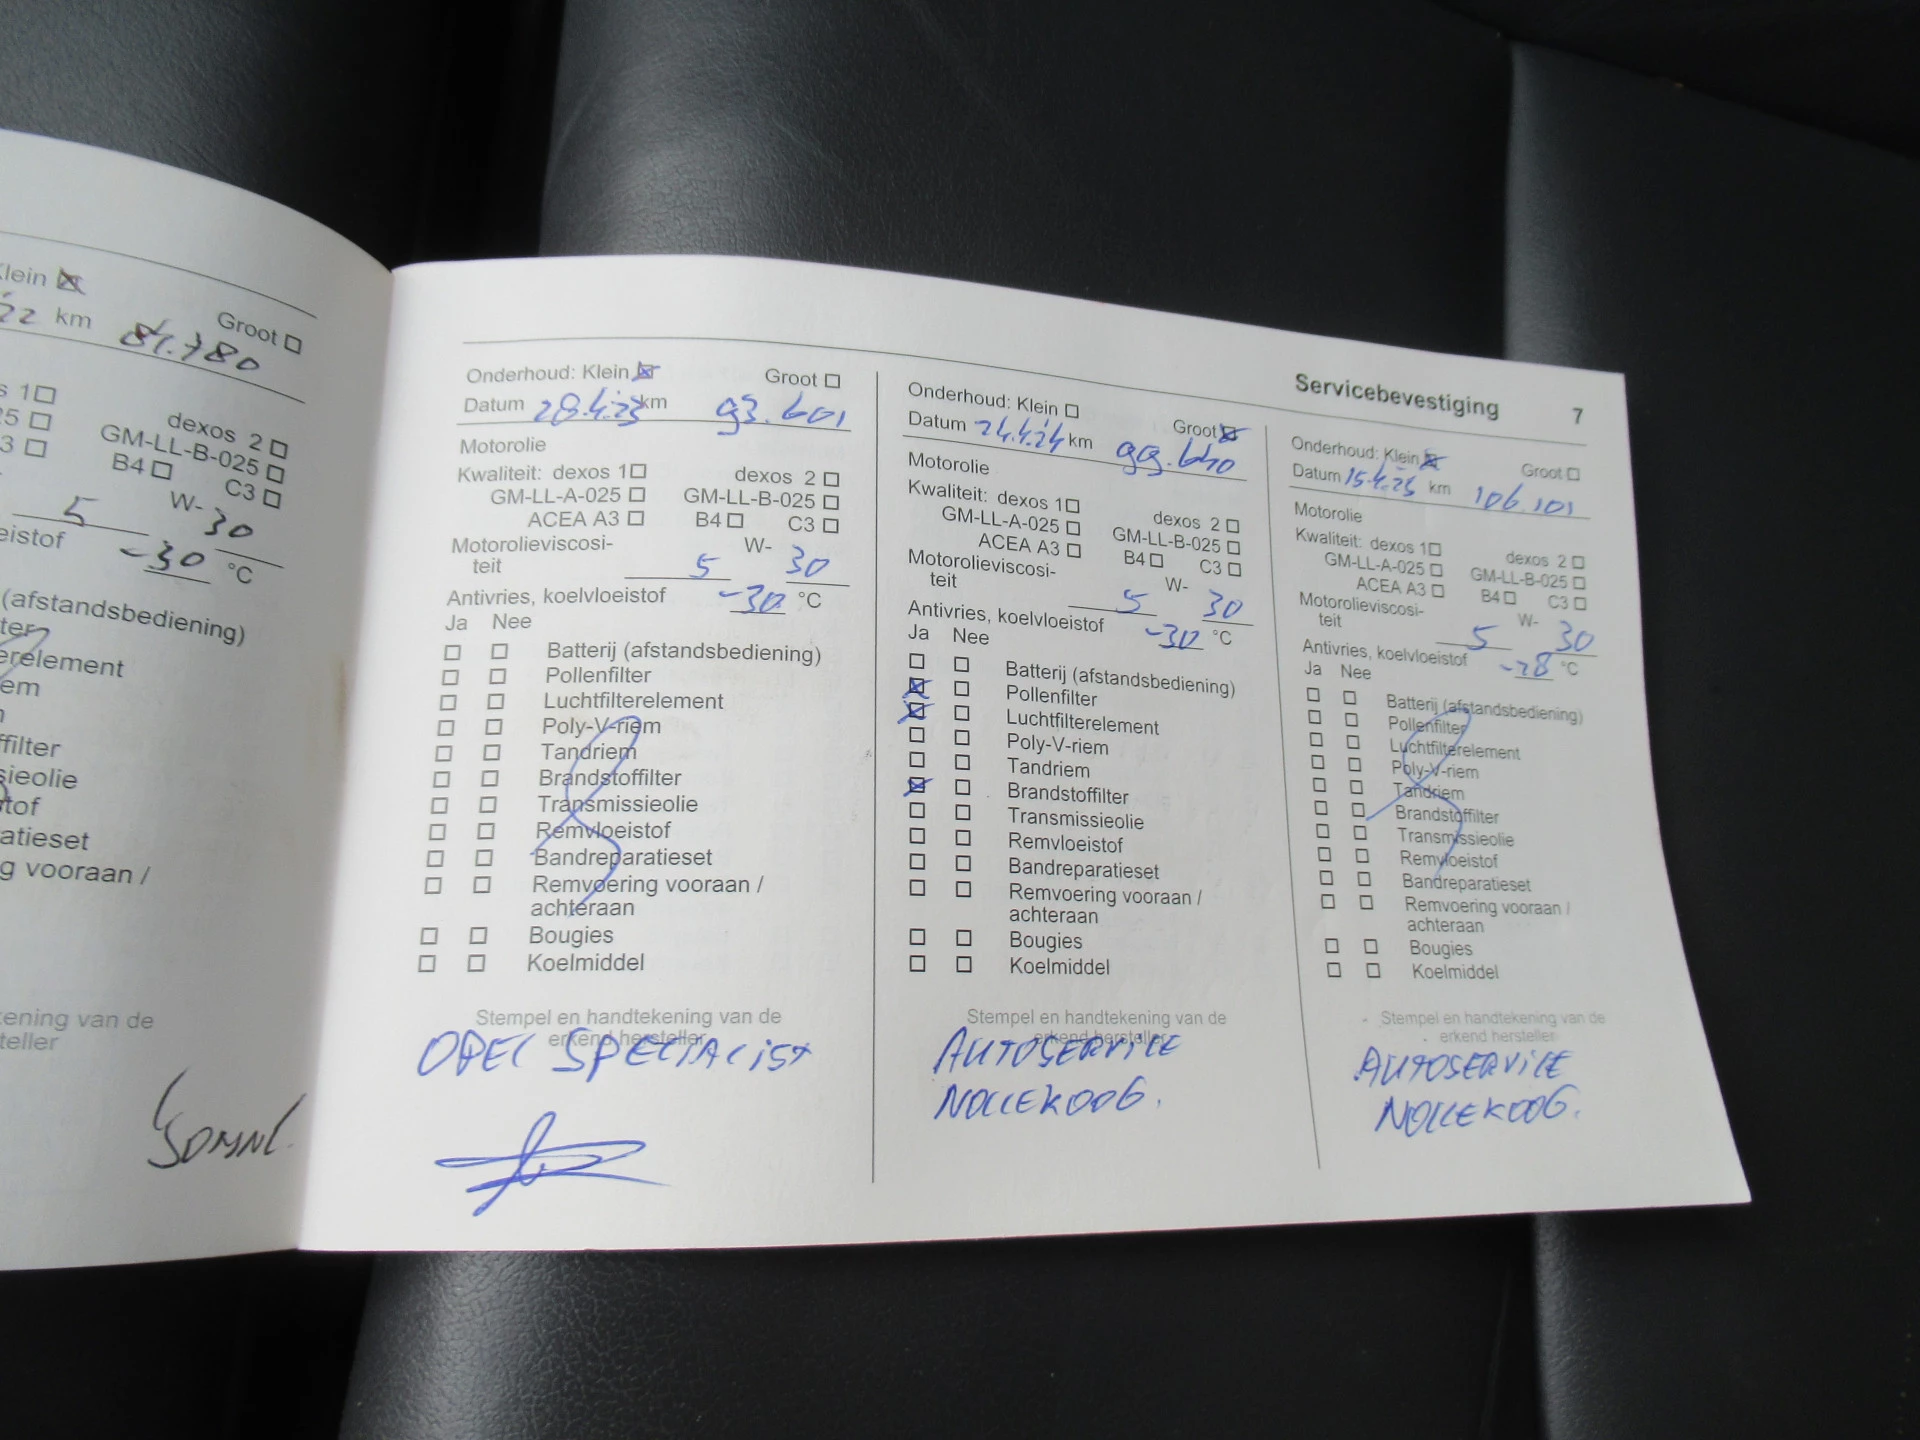 Klein ☒ Groot ☐
22 km 84.780
s 1☐ dexos 2 ☐
25 ☐ GM-LL-B-025 ☐
3 ☐ B4 ☐ C3 ☐
5 W- 30
eistof -30 °C
(afstandsbediening)
ter
erelement
em
ffilter
sieolie
tof
atieset
g vooraan /
kening van de
teller
Servicebevestiging 7
Onderhoud: Klein ☒ Groot ☐
Datum 28.4.23 km 93.601
Motorolie
Kwaliteit: dexos 1☐ dexos 2 ☐
GM-LL-A-025 ☐ GM-LL-B-025 ☐
ACEA A3 ☐ B4 ☐ C3 ☐
Motorolieviscosi- W-
teit 5 30
Antivries, koelvloeistof -30 °C
Ja Nee
☐ ☐ Batterij (afstandsbediening)
☐ ☐ Pollenfilter
☐ ☐ Luchtfilterelement
☐ ☐ Poly-V-riem
☐ ☐ Tandriem
☐ ☐ Brandstoffilter
☐ ☐ Transmissieolie
☐ ☐ Remvloeistof
☐ ☐ Bandreparatieset
☐ ☐ Remvoering vooraan /
achteraan
☐ ☐ Bougies
☐ ☐ Koelmiddel
Stempel en handtekening van de
erkend hersteller
OPEL SPECIALIST
Onderhoud: Klein ☐ Groot ☒
Datum 24.4.24 km 99.640
Motorolie
Kwaliteit: dexos 1☐ dexos 2 ☐
GM-LL-A-025 ☐ GM-LL-B-025 ☐
ACEA A3 ☐ B4 ☐ C3 ☐
Motorolieviscosi- W-
teit 5 30
Antivries, koelvloeistof -30 °C
Ja Nee
☐ ☐ Batterij (afstandsbediening)
☒ ☐ Pollenfilter
☒ ☐ Luchtfilterelement
☐ ☐ Poly-V-riem
☐ ☐ Tandriem
☒ ☐ Brandstoffilter
☐ ☐ Transmissieolie
☐ ☐ Remvloeistof
☐ ☐ Bandreparatieset
☐ ☐ Remvoering vooraan /
achteraan
☐ ☐ Bougies
☐ ☐ Koelmiddel
Stempel en handtekening van de
erkend hersteller
AUTOSERVICE
NOLLEKOOG.
Onderhoud: Klein ☒ Groot ☐
Datum 15.4.25 km 106.101
Motorolie
Kwaliteit: dexos 1☐ dexos 2 ☐
GM-LL-A-025 ☐ GM-LL-B-025 ☐
ACEA A3 ☐ B4 ☐ C3 ☐
Motorolieviscosi- W-
teit 5 30
Antivries, koelvloeistof -28 °C
Ja Nee
☐ ☐ Batterij (afstandsbediening)
☐ ☐ Pollenfilter
☐ ☐ Luchtfilterelement
☐ ☐ Poly-V-riem
☐ ☐ Tandriem
☐ ☐ Brandstoffilter
☐ ☐ Transmissieolie
☐ ☐ Remvloeistof
☐ ☐ Bandreparatieset
☐ ☐ Remvoering vooraan /
achteraan
☐ ☐ Bougies
☐ ☐ Koelmiddel
Stempel en handtekening van de
erkend hersteller
AUTOSERVICE
NOLLEKOOG.